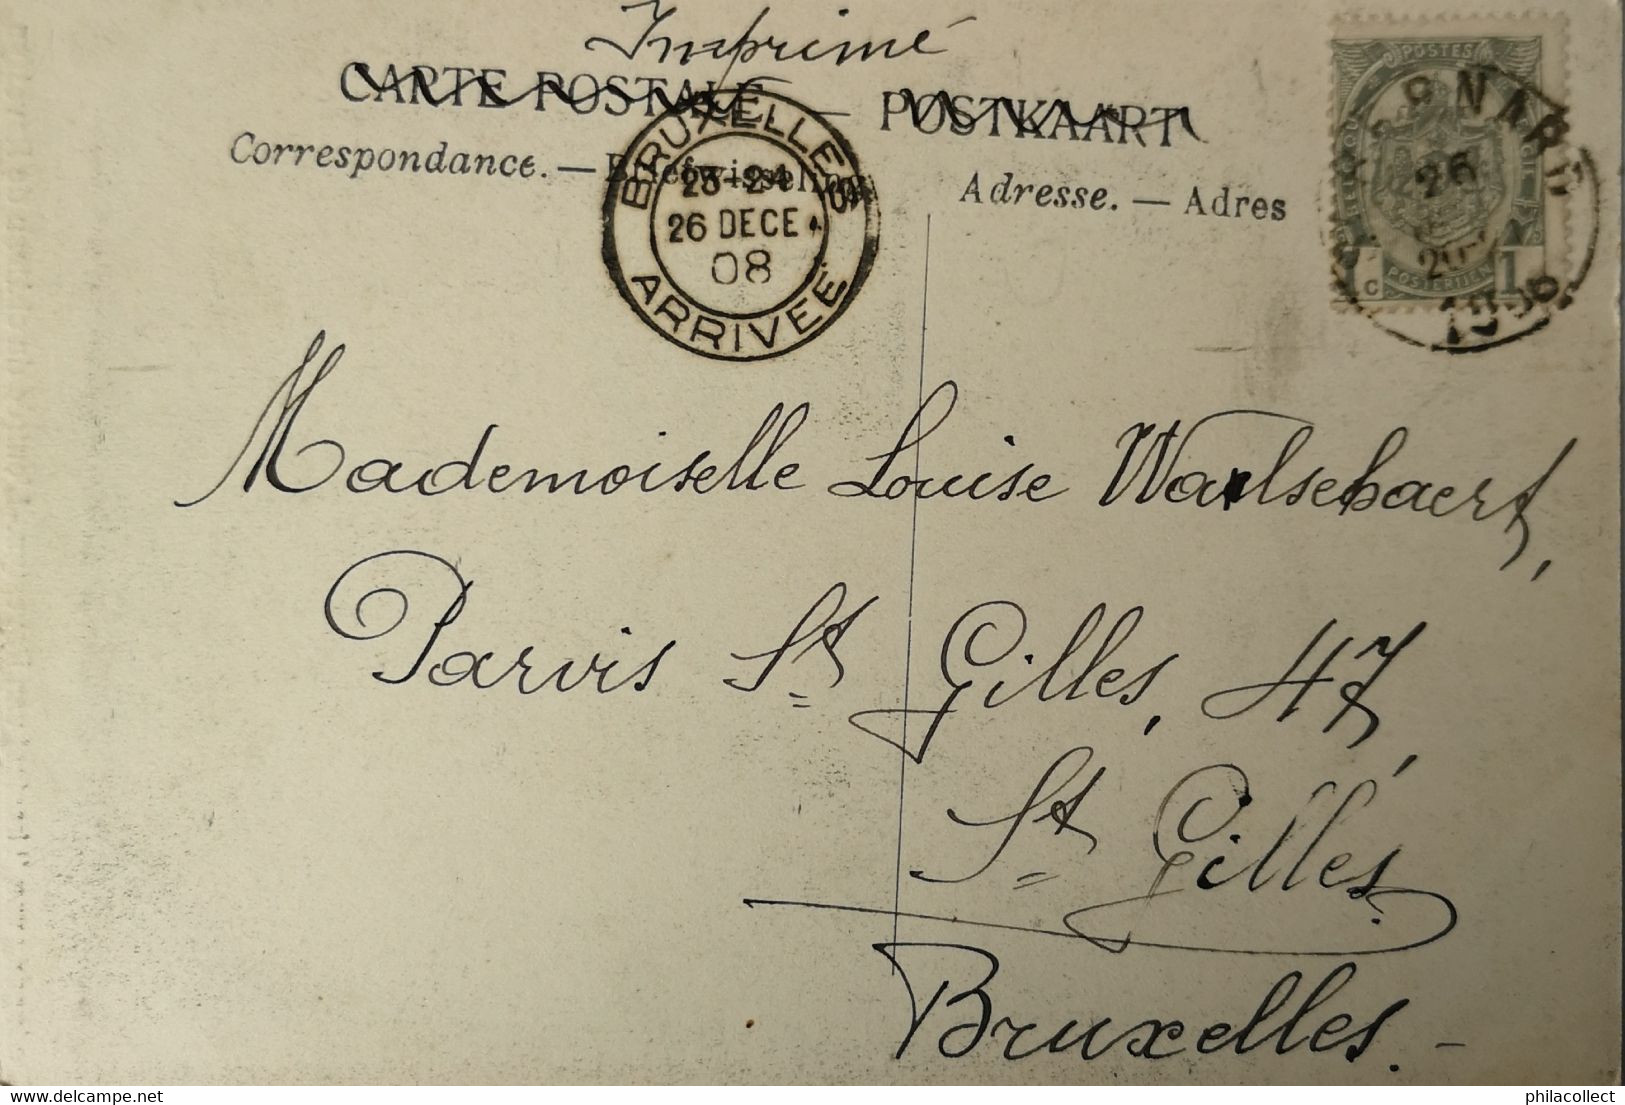 Imprimé
CARTE POSTALE — POSTKAART
Correspondance. — Briefwisseling
Adresse. — Adres
BRUXELLES
23-24
26 DECE
08
ARRIVEE
POSTES
POSTERIJEN
1 C
26
1908
Mademoiselle Louise Walschaert,
Parvis St Gilles, 47,
St Gilles.
Bruxelles. -
philacollect